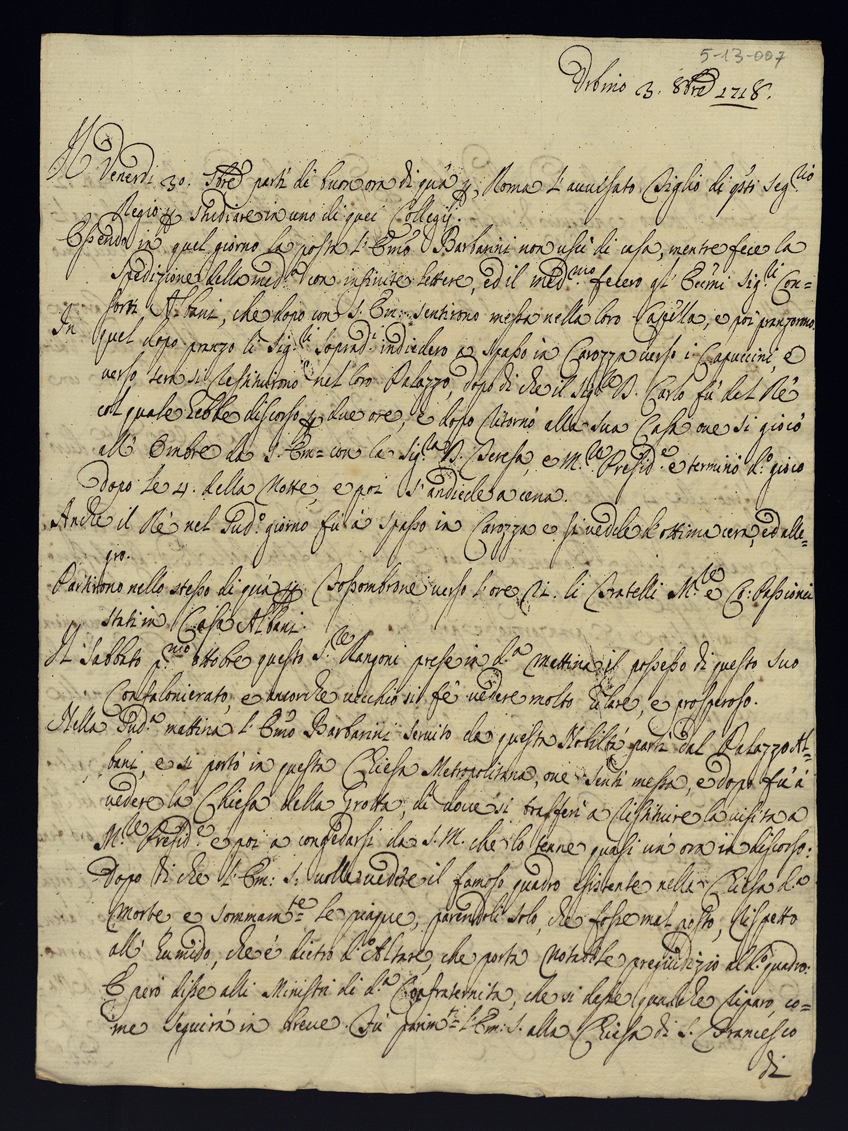 5-13-007
Urbino 3. 8bre 1718.
Venerdì 30. 7bre partì di buon ora di quà p Roma l'avvisato Figlio di qti Sig.rio
Regio p studiare in uno di quei Collegij.
Essendo in quel giorno la posta l'Emo Barbarini non uscì di casa, mentre fece la
spedizione della med.a con infinite lettere, ed il med.mo fecero gl'Ecc.mi Sig.li Con=
sorti Albani, che dopo con S. Em: sentirono messa nella loro Capella, e poi pranzorno.
In quel dopo pranzo li Sig.li Soprad.i indiedero a spasso in Carozza verso i Capuccini, e
verso sera si restituirono nel loro Palazzo, dopo di che il Sig.re D. Carlo fù dal Rè
col quale hebbe discorso p due ore, e dopo ritornò alla sua Casa ove si giocò
all'Ombre da S. Em= con la Sig.ra D. Teresa, e M.re Presid.e e terminò d.o gioco
dopo le 4. della Notte, e poi s'andiede a cena.
Anche il Rè nel sud.o giorno fù à spasso in Carozza e si vedde d'ottima cera, ed alle=
gro.
Partirono nello stesso di quà p Fossombrone verso l'ore 21. li Fratelli M.re e C: Passionei
stati in Casa Albani.
Il Sabbato p.mo ottobre questo S.re Mangoni prese in d.a mattina il possesso di questo suo
Confalonierato, e ancorche vecchio si fè vedere molto ilare, e prosperoso.
Nella sud.a mattina l'Emo Barbarini servito da questa Nobiltà partì dal Palazzo Al=
bani, e si portò in questa Chiesa Metropolitana, ove sentì messa, e dopo fù à
vedere la Chiesa della Grotta, di dove si trasferì a restituire la visita a
M.re Presid.e e poi a congedarsi da S. M. che lo tenne quasi un'ora in discorso:
Dopo di che l'Em: S. volle vedere il famoso quadro esistente nella Chiesa d.a
Morte e sommam.te le piaque, parendoli solo, che fosse mal posto, rispetto
all'humido, che è dietro l'Altare, che porta notabile pregiudizio al d.o quadro:
E però disse alli Ministri di d.a Confraternita, che si desse qualche riparo, co=
me seguirà in breve. Fù parim.te l'Em: S. alla Chiesa di S. Francesco
di